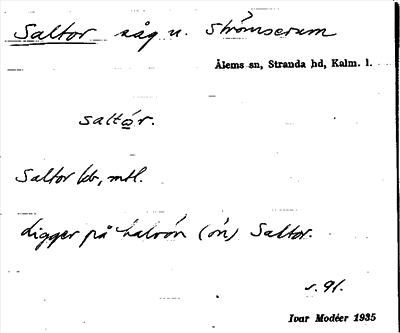 Saltor såg u. Strömserum
Ålems sn, Stranda hd, Kalm. l.
saltó̲r.
Saltor kb, mtl.
Ligger på halvön (ön) Saltor.
s. 91.
Ivar Modéer 1935